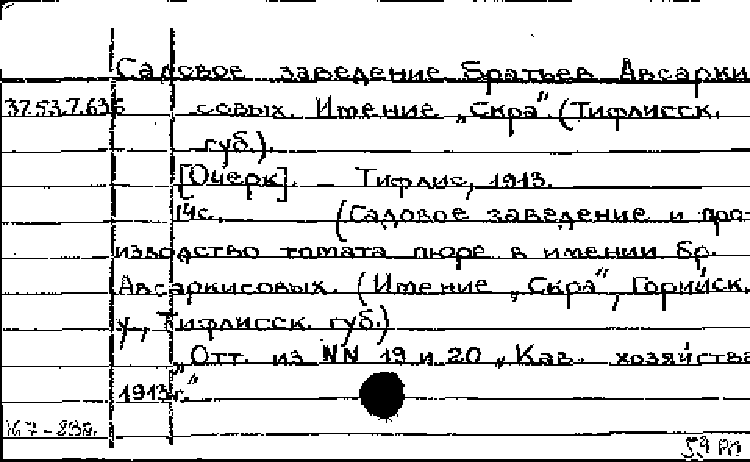 Садовое заведение Братьев Авсарки-
37.53.7.636 совых. Имение „Скра". (Тифлисск.
губ.).
[Очерк]. Тифлис, 1913.
14с. (Садовое заведение и про-
изводство томата пюре в имении бр.
Авсаркисовых. (Имение „Скра", Горийск.
у., Тифлисск. губ.)
„Отт. из NN 19 и 20 „Кав. хозяйства
1913г."
59 РП